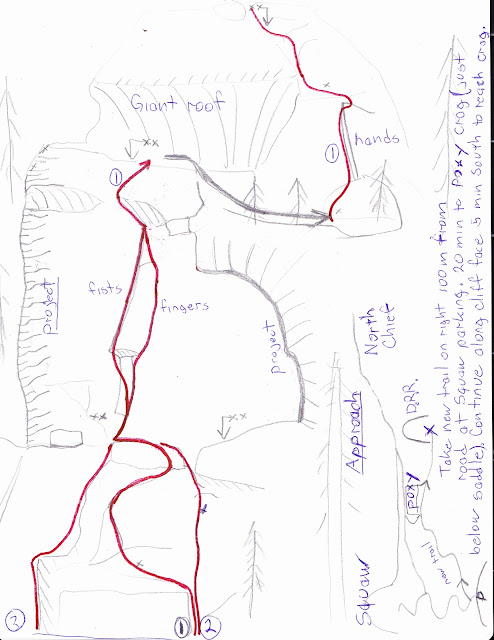 Giant roof
xx
x
x
hands
1
xx
1
project
fists
fingers
project
xx
xx
x
x
3
1
2
North
Chief
Approach
Squaw
poxy
x
D.R.R.
new trail
P
Take new trail on right 100m from
road at Squaw parking. 20 min to Poxy crag (just
below saddle). Continue along cliff face 5 min South to reach crag.